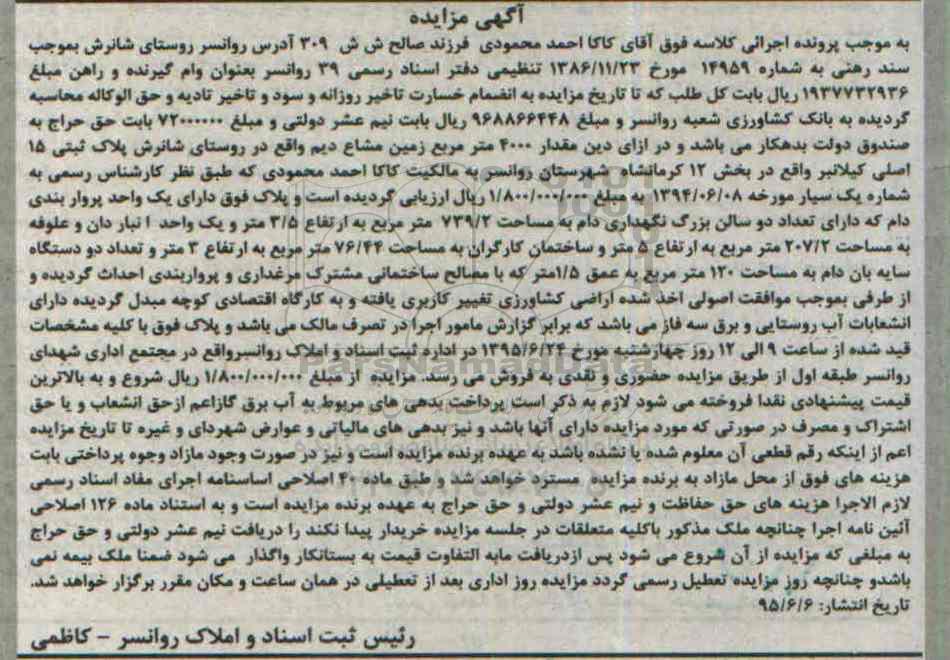 آگهی مزایده
به موجب پرونده اجرائی کلاسه فوق آقای کاکا احمد محمودی فرزند صالح ش ش ۳۰۹ آدرس روانسر روستای شانرش بموجب
سند رهنی به شماره ۱۴۹۵۹ مورخ ۱۳۸۶/۱۱/۲۳ تنظیمی دفتر اسناد رسمی ۳۹ روانسر بعنوان وام گیرنده و راهن مبلغ
۱۹۳۷۷۳۲۹۳۶ ریال بابت کل طلب که تا تاریخ مزایده به انضمام خسارت تاخیر روزانه و سود و تاخیر تادیه و حق الوکاله محاسبه
گردیده به بانک کشاورزی شعبه روانسر و مبلغ ۹۶۸۸۶۶۴۴۸ ریال بابت نیم عشر دولتی و مبلغ ۷۲۰۰۰۰۰۰ بابت حق حراج به
صندوق دولت بدهکار می باشد و در ازای دین مقدار ۴۰۰۰ متر مربع زمین مشاع دیم واقع در روستای شانرش پلاک ثبتی ۱۵
اصلی کیلانبر واقع در بخش ۱۲ کرمانشاه شهرستان روانسر به مالکیت کاکا احمد محمودی که طبق نظر کارشناس رسمی به
شماره یک سیار مورخه ۱۳۹۴/۰۶/۰۸ به مبلغ ۱/۸۰۰/۰۰۰/۰۰۰ ریال ارزیابی گردیده است و پلاک فوق دارای یک واحد پروار بندی
دام که دارای تعداد دو سالن بزرگ نگهداری دام به مساحت ۷۳۹/۲ متر مربع به ارتفاع ۳/۵ متر و یک واحد انبار دان و علوفه
به مساحت ۲۰۷/۲ متر مربع به ارتفاع ۵ متر و ساختمان کارگران به مساحت ۷۶/۴۴ متر مربع به ارتفاع ۳ متر و تعداد دو دستگاه
سایه بان دام به مساحت ۱۲۰ متر مربع به عمق ۱/۵متر که با مصالح ساختمانی مشترک مرغداری و پرواربندی احداث گردیده و
از طرفی بموجب موافقت اصولی اخذ شده اراضی کشاورزی تغییر کاربری یافته و به کارگاه اقتصادی کوچه مبدل گردیده دارای
انشعابات آب روستایی و برق سه فاز می باشد که برابر گزارش مامور اجرا در تصرف مالک می باشد و پلاک فوق با کلیه مشخصات
قید شده از ساعت ۹ الی ۱۲ روز چهارشنبه مورخ ۱۳۹۵/۶/۲۴ در اداره ثبت اسناد و املاک روانسرواقع در مجتمع اداری شهدای
روانسر طبقه اول از طریق مزایده حضوری و نقدی به فروش می رسد. مزایده از مبلغ ۱/۸۰۰/۰۰۰/۰۰۰ ریال شروع و به بالاترین
قیمت پیشنهادی نقدا فروخته می شود لازم به ذکر است پرداخت بدهی های مربوط به آب برق گازاعم ازحق انشعاب و یا حق
اشتراک و مصرف در صورتی که مورد مزایده دارای آنها باشد و نیز بدهی های مالیاتی و عوارض شهردای و غیره تا تاریخ مزایده
اعم از اینکه رقم قطعی آن معلوم شده یا نشده باشد به عهده برنده مزایده است و نیز در صورت وجود مازاد وجوه پرداختی بابت
هزینه های فوق از محل مازاد به برنده مزایده مسترد خواهد شد و طبق ماده ۴۰ اصلاحی اساسنامه اجرای مفاد اسناد رسمی
لازم الاجرا هزینه های حق حفاظت و نیم عشر دولتی و حق حراج به عهده برنده مزایده است و به استناد ماده ۱۲۶ اصلاحی
آئین نامه اجرا چنانچه ملک مذکور باکلیه متعلقات در جلسه مزایده خریدار پیدا نکند را دریافت نیم عشر دولتی و حق حراج
به مبلغی که مزایده از آن شروع می شود پس ازدریافت مابه التفاوت قیمت به بستانکار واگذار می شود ضمنا ملک بیمه نمی
باشدو چنانچه روز مزایده تعطیل رسمی گردد مزایده روز اداری بعد از تعطیلی در همان ساعت و مکان مقرر برگزار خواهد شد.
تاریخ انتشار: ۹۵/۶/۶
رئیس ثبت اسناد و املاک روانسر - کاظمی
ParsNamadData